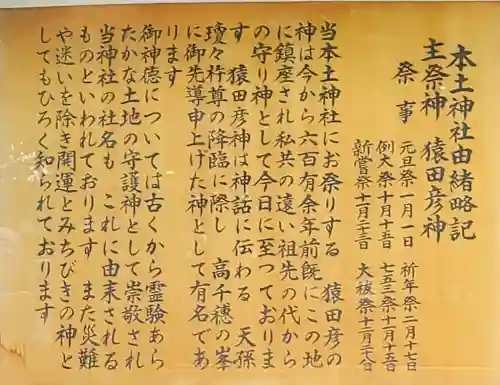 本土神社由緒略記
主祭神　猿田彦神
祭事
元旦祭一月一日　祈年祭二月十七日
例大祭十月十五日　七五三祭十一月十五日
新嘗祭十一月二十三日　大祓祭十二月二十八日
当本土神社にお祭りする　猿田彦の
神は今から六百有余年前既にこの地
に鎮座され私共の遠い祖先の代から
の守り神として今日に至つておりま
す　猿田彦神は神話に伝わる　天孫
瓊々杵尊の降臨に際し　高千穂の峯
に御先導申上げた神として有名であ
ります
御神徳については古くから霊験あら
たかな土地の守護神として崇敬され
当神社の社名も　これに由来される
ものといわれております　また災難
や迷いを除き開運とみちびきの神と
してもひろく知られております